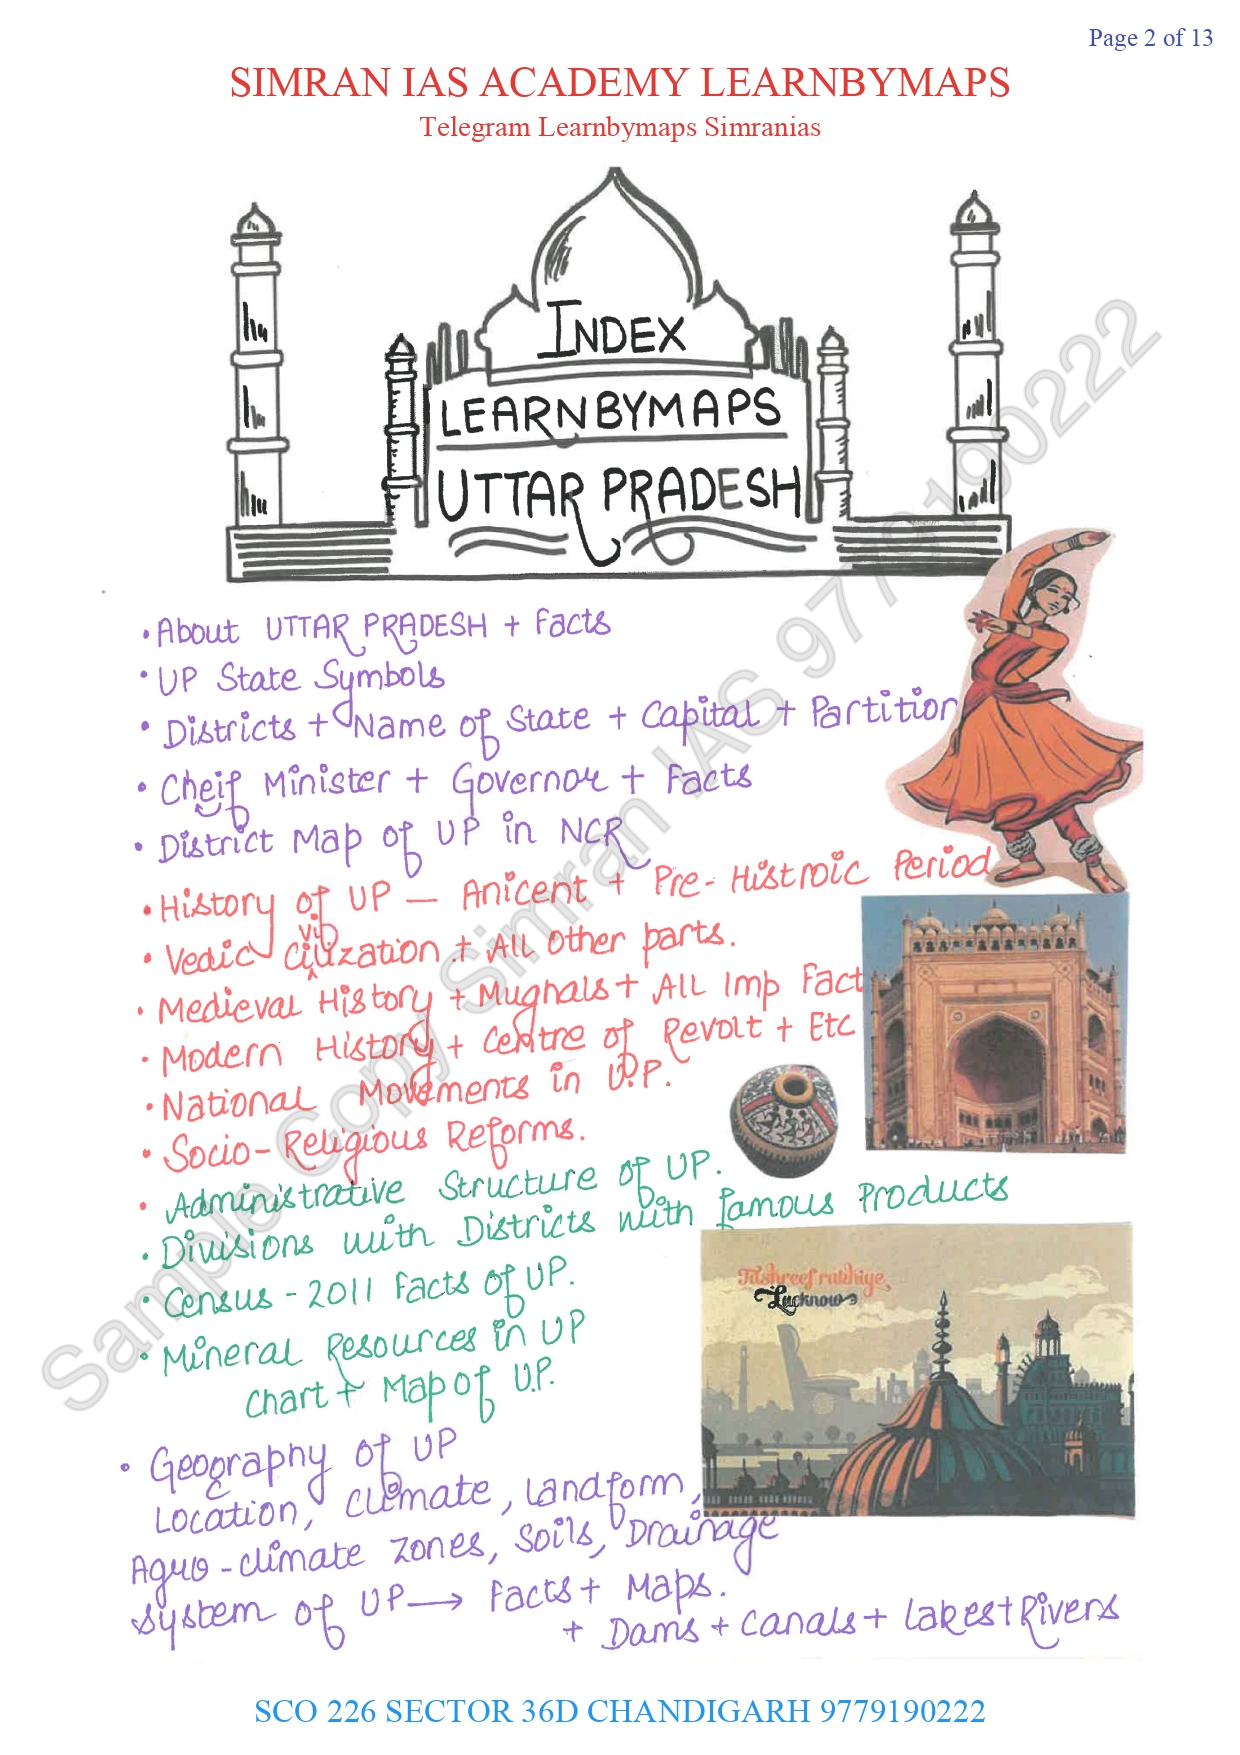 Page 2 of 13
SIMRAN IAS ACADEMY LEARNBYMAPS
Telegram Learnbymaps Simranias
INDEX
LEARNBYMAPS
UTTAR PRADESH
• About UTTAR PRADESH + Facts
• UP State Symbols
• Districts + Name of State + Capital + Partition
• Cheif Minister + Governor + Facts
• District Map of UP in NCR
• History of UP — Anicent + Pre-Histroic Period
• Vedic Civilization + All Other parts.
• Medieval History + Mughals + All Imp Fact
• Modern History + Centre of Revolt + Etc
• National Movements in U.P.
• Socio-Religious Reforms.
• Administrative Structure of UP.
• Divisions with Districts with famous Products
• Census - 2011 Facts of UP.
• Mineral Resources in UP
Chart + Map of U.P.
Tashreef rakhiye
Lucknow
• Geography of UP
Location, Climate, Landform,
Agro-climate zones, Soils, Drainage
System of UP → Facts + Maps.
+ Dams + Canals + Lakes + Rivers
Sample Copy Simran IAS 9779190222
SCO 226 SECTOR 36D CHANDIGARH 9779190222